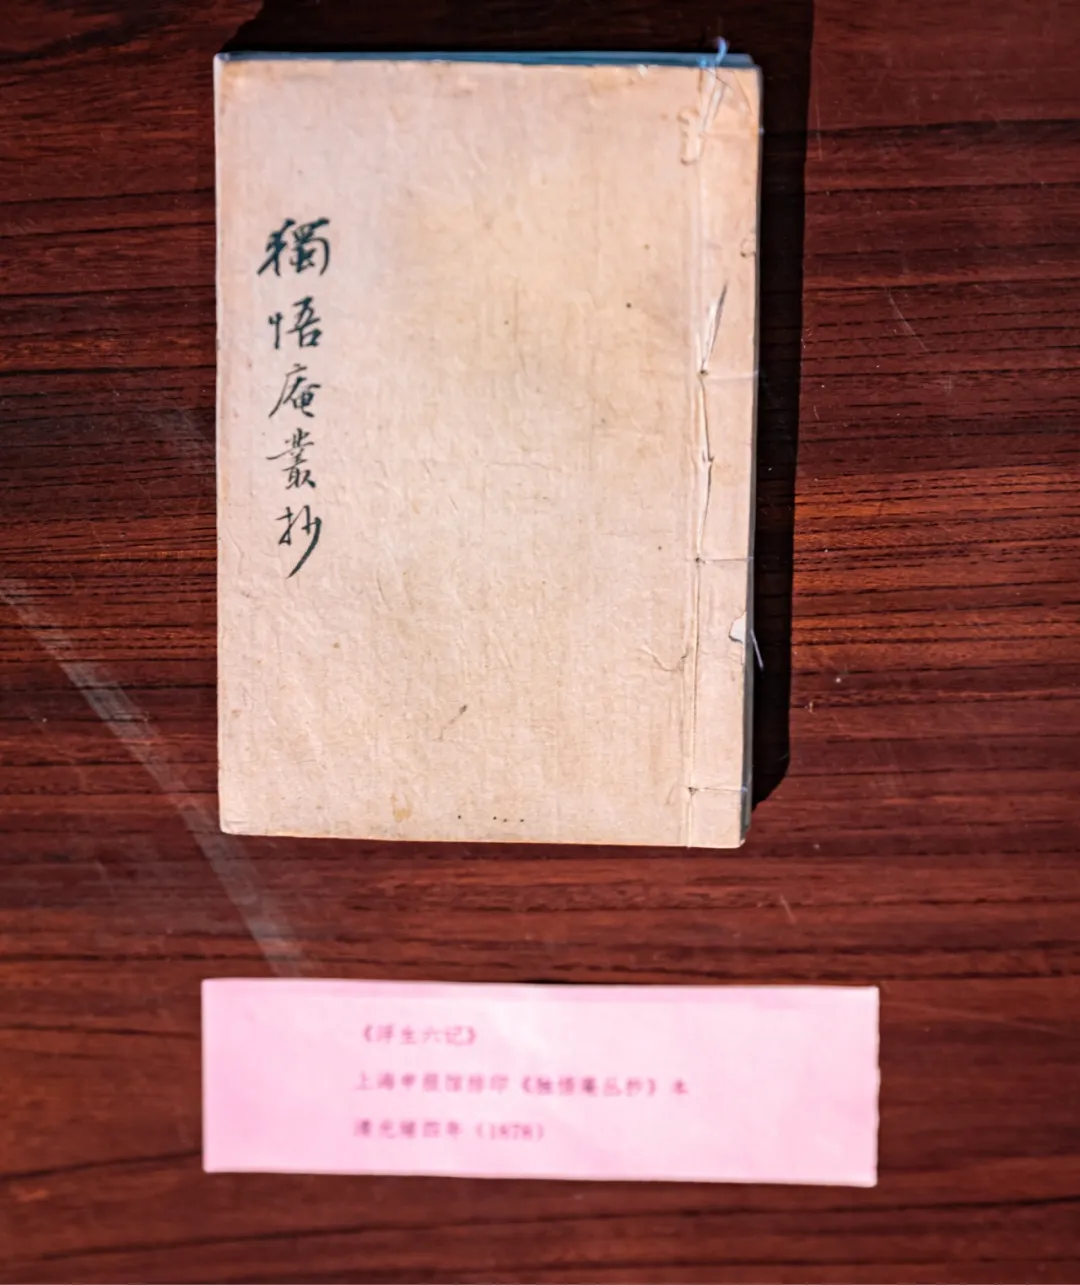 獨悟庵叢抄
《浮生六记》
上海申报馆排印《独悟庵丛抄》本
清光绪四年（1878）